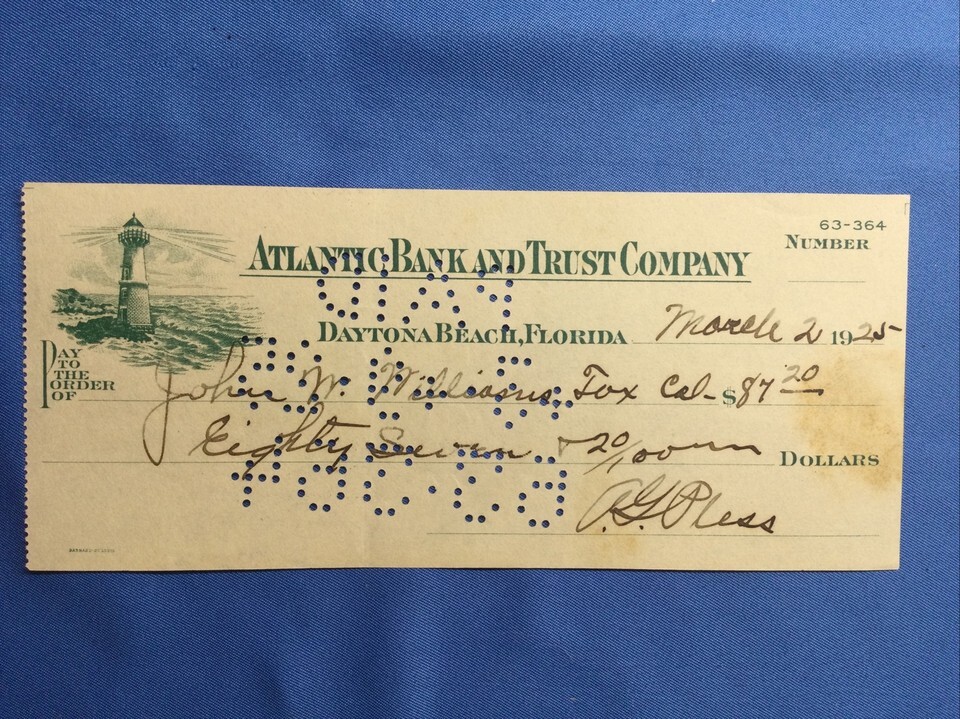 63-364
NUMBER
ATLANTIC BANK AND TRUST COMPANY
DAYTONA BEACH, FLORIDA March 2 1925
PAY TO THE ORDER OF John W. Williams, Tax Col- $87 20
Eighty Seven & 20/100 DOLLARS
A.G. Pless
PAID
63-364